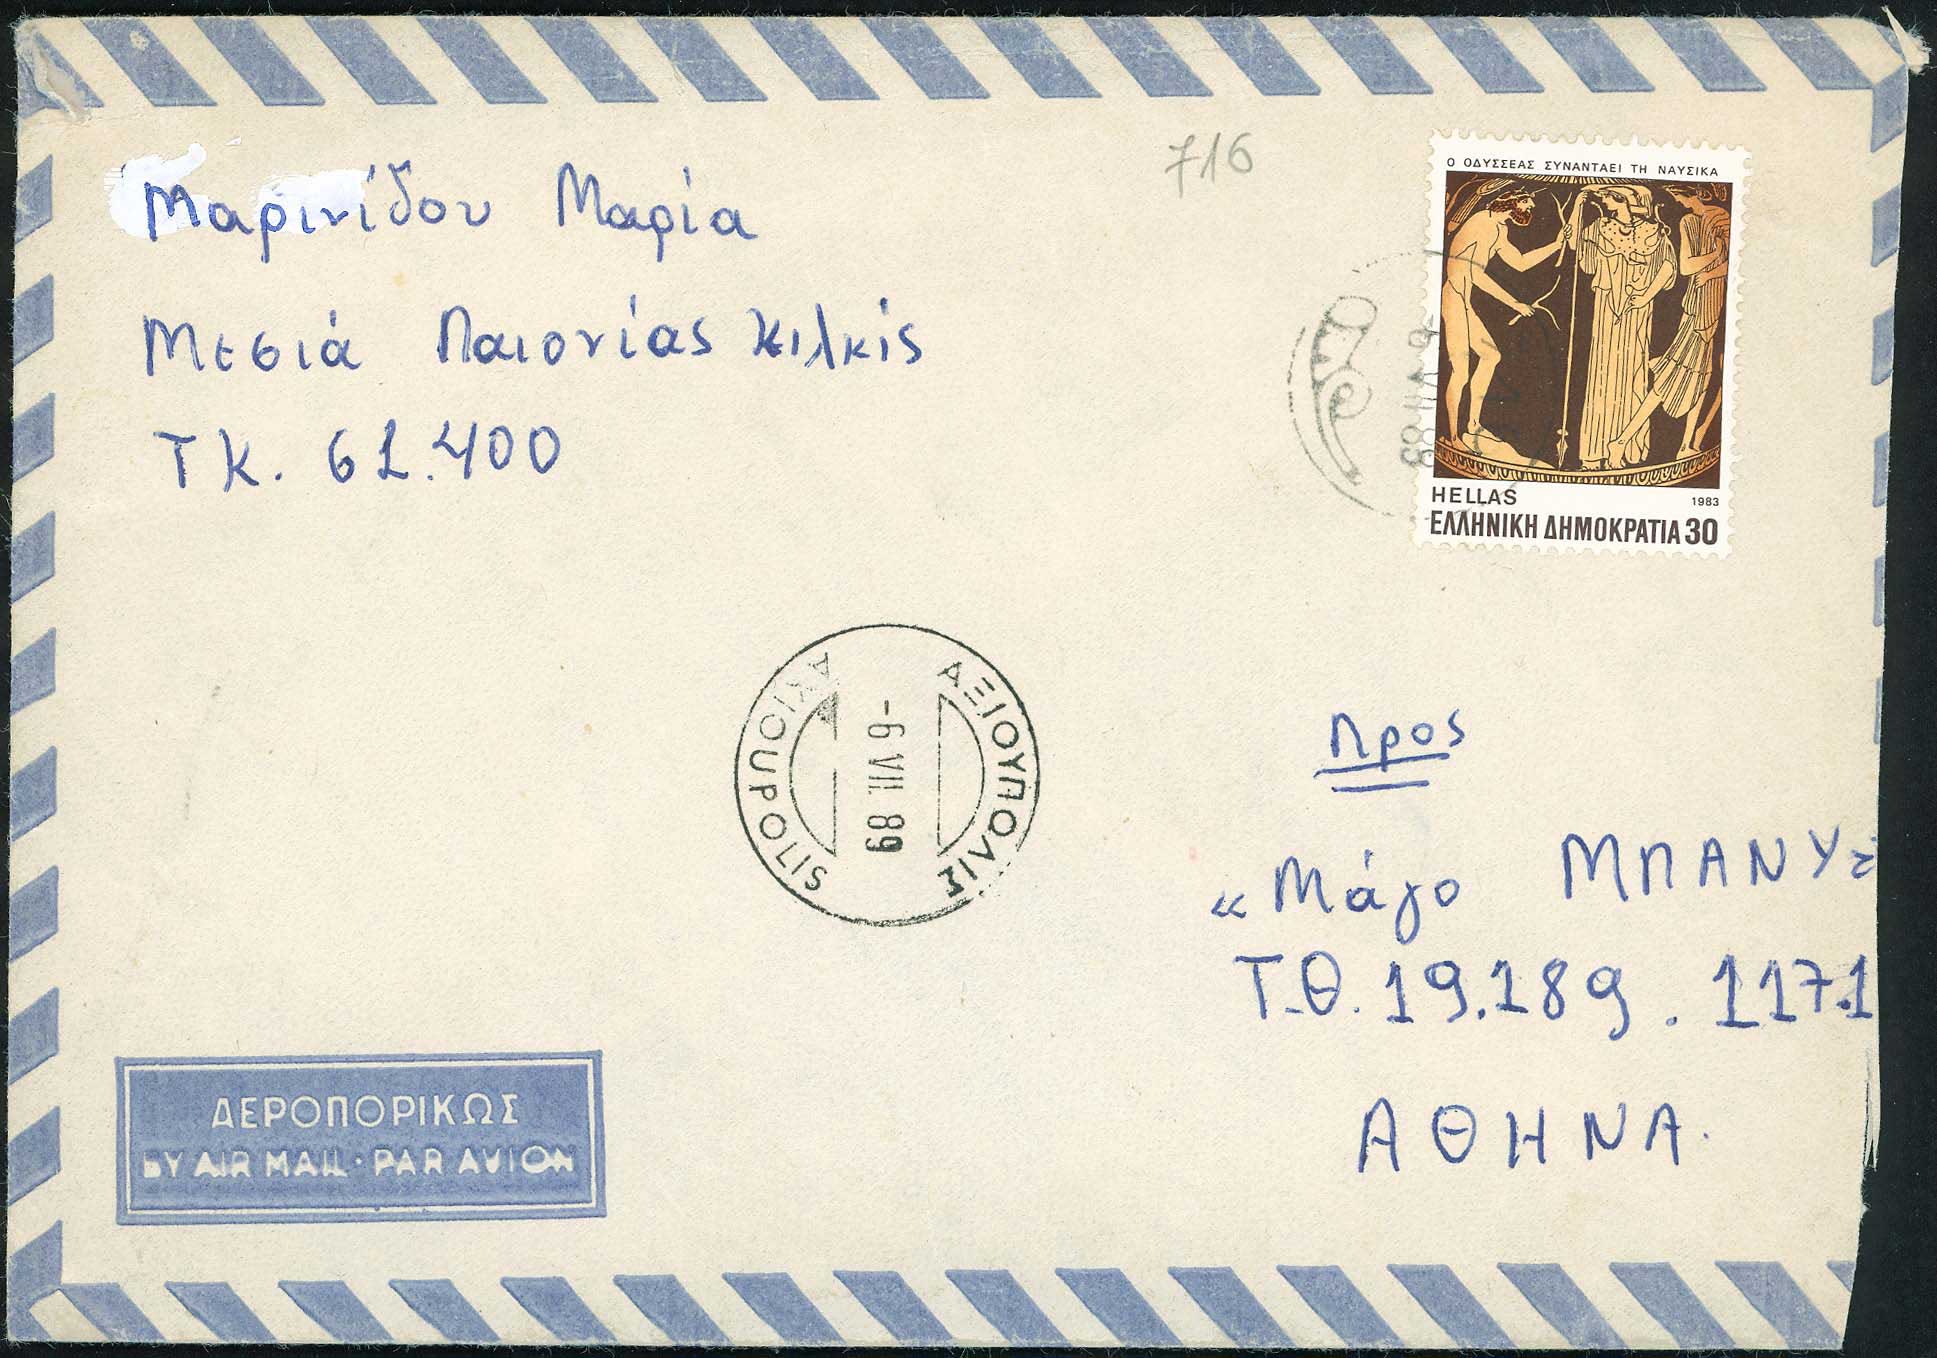 716
Μαρινίδου Μαρία
Μεσιά Παιονίας Κιλκίς
ΤΚ. 61.400
Ο ΟΔΥΣΣΕΑΣ ΣΥΝΑΝΤΑΕΙ ΤΗ ΝΑΥΣΙΚΑ
HELLAS 1983
ΕΛΛΗΝΙΚΗ ΔΗΜΟΚΡΑΤΙΑ 30
ΑΞΙΟΥΠΩΛΙΣ
-6 VII. 89
AXIOUPOLIS
Προς
«Μάγο ΜΠΑΝΥΣ
Τ.Θ. 19.189. 1171
ΑΘΗΝΑ.
ΑΕΡΟΠΟΡΙΚΩΣ
BY AIR MAIL · PAR AVION